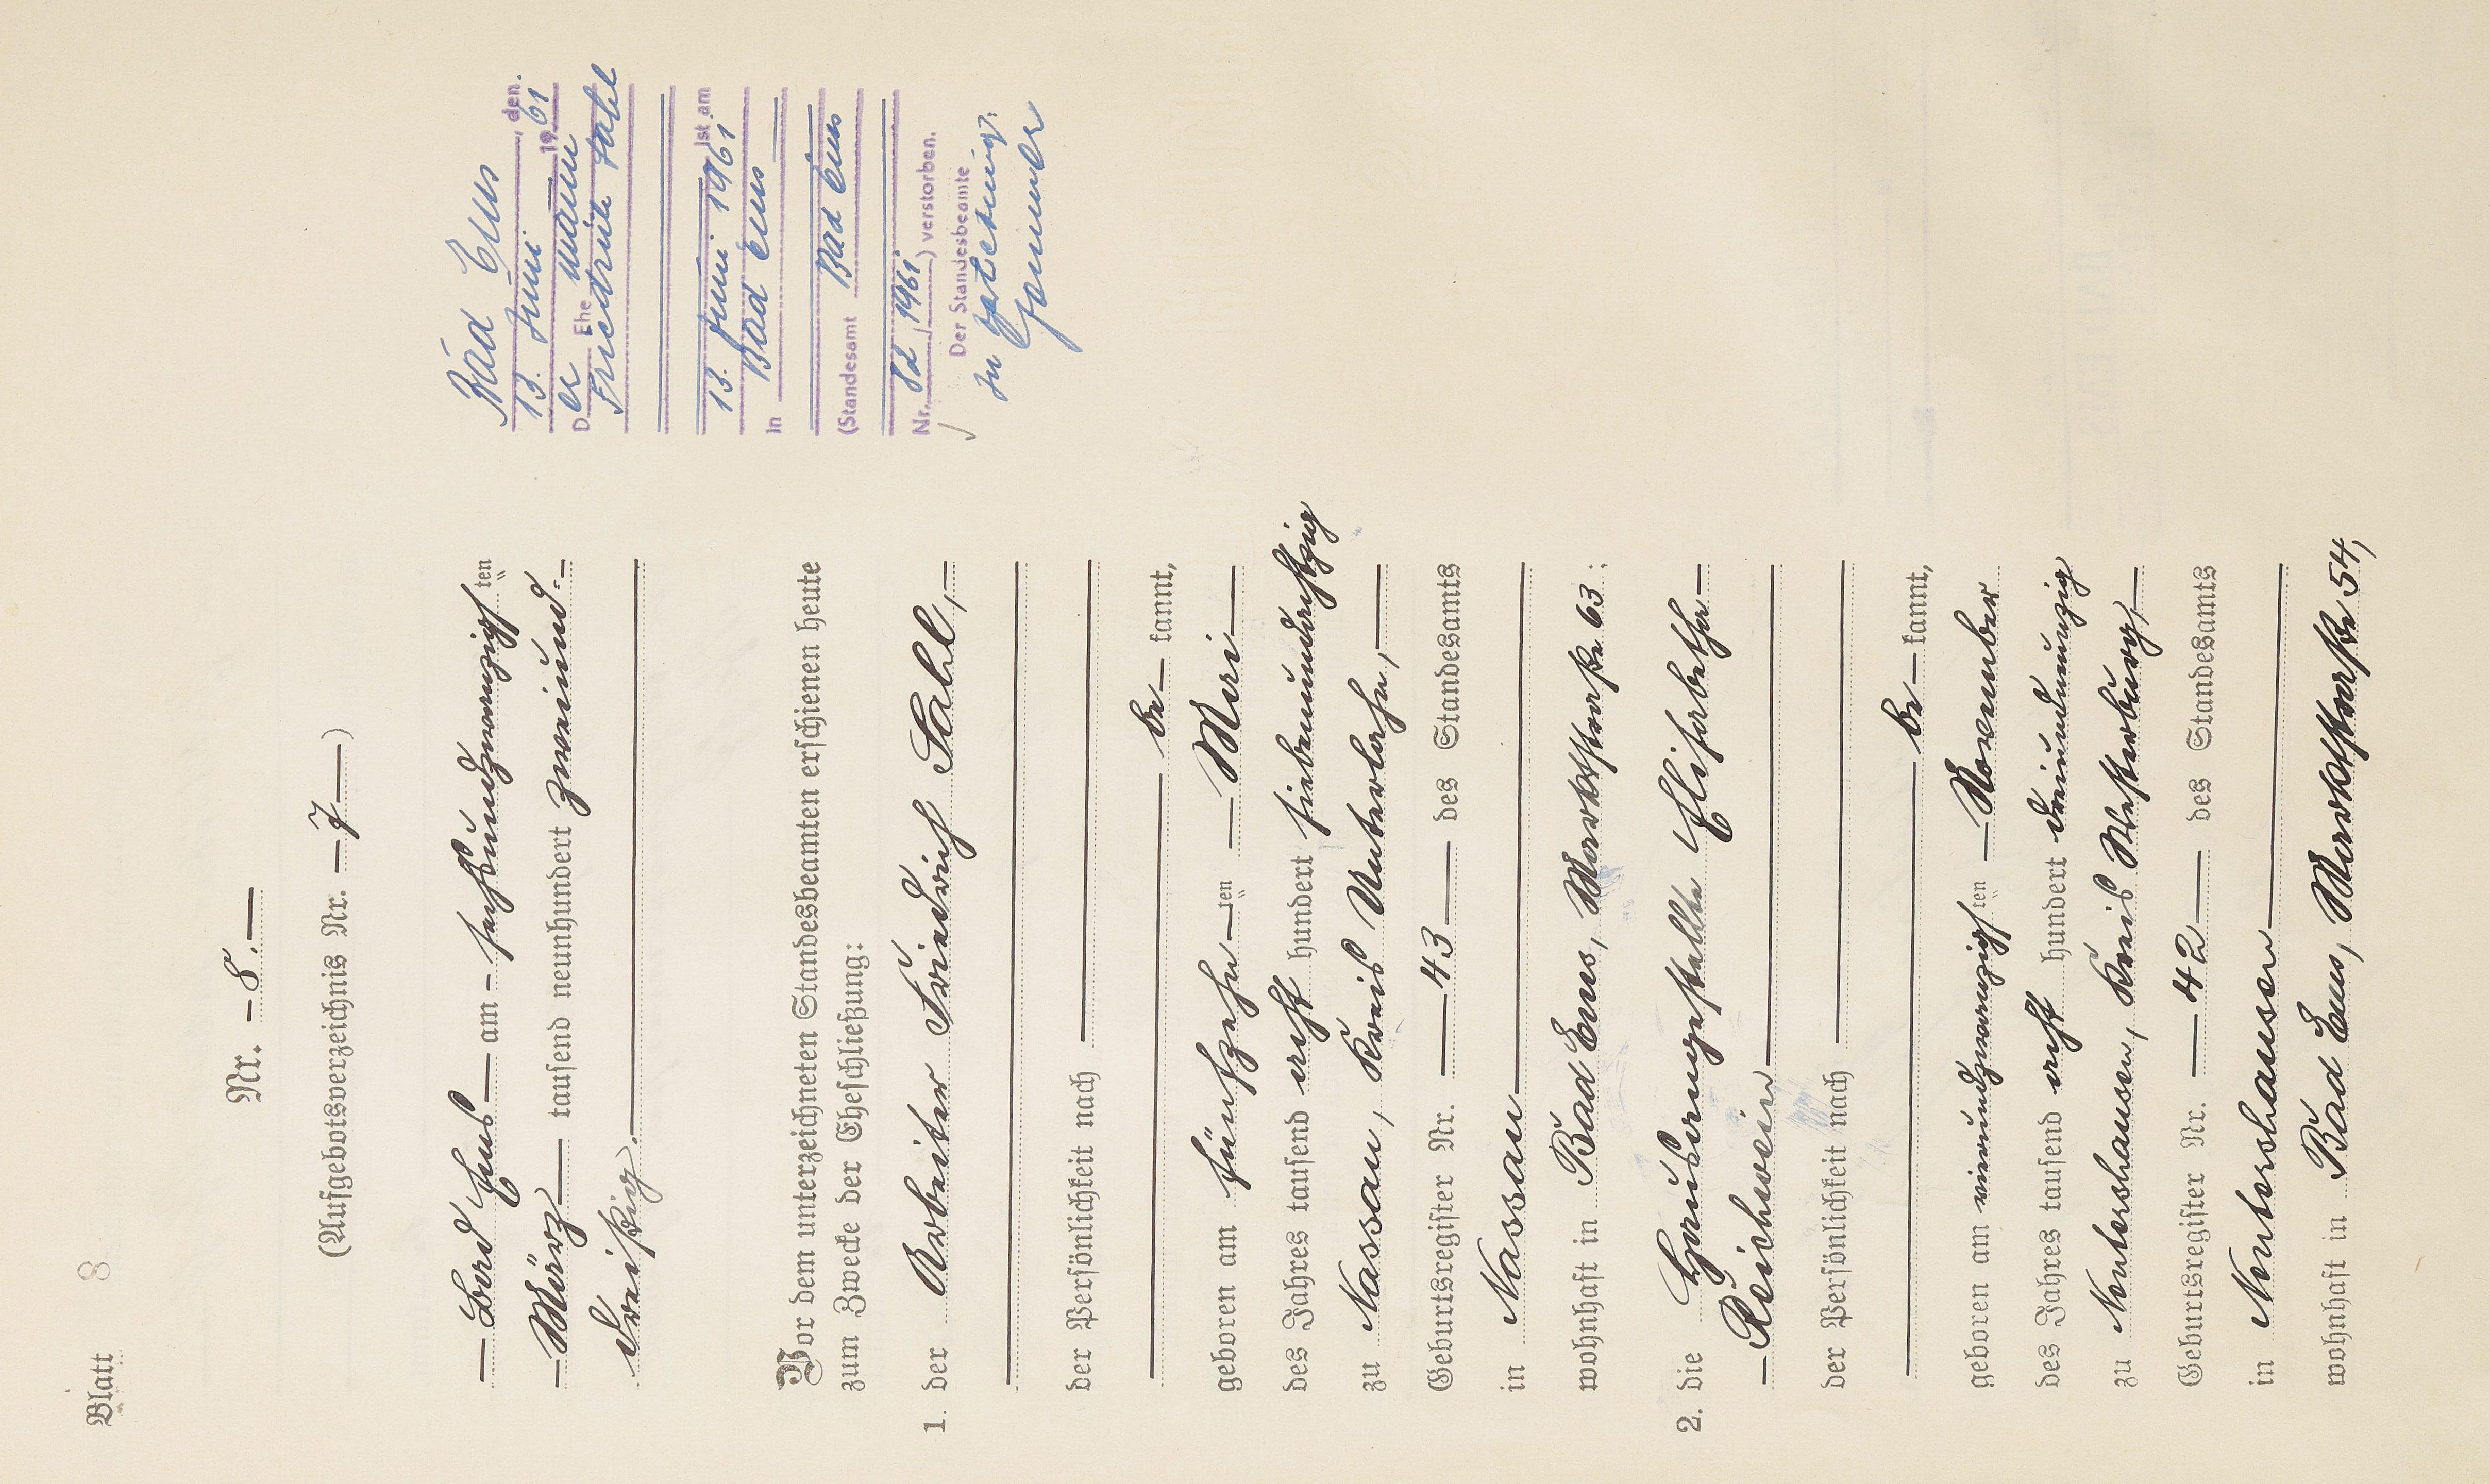 Blatt 8
Nr. – 8. –
(Aufgebotsverzeichnis Nr. – 7 –)
– Bad Ems – am – sechsundzwanzigsten
– März – tausend neunhundert zweiund-
dreißig. –
Vor dem unterzeichneten Standesbeamten erschienen heute
zum Zwecke der Eheschließung:
1. der Arbeiter Friedrich Sahl, –
der Persönlichkeit nach –
– be – kannt,
geboren am fünfzehn – ten – Mai –
des Jahres tausend acht hundert siebenundachtzig
zu Nassau, Kreis Unterlahn, –
Geburtsregister Nr. – 43 – des Standesamts
in Nassau –
wohnhaft in Bad Ems, Marktstraße 63:
2. die Hausangestellte Elisabetha –
– Reichwein –
der Persönlichkeit nach –
– be – kannt,
geboren am vierundzwanzigsten – November
des Jahres tausend acht hundert dreiundneunzig
zu Nentershausen, Kreis Westerburg, –
Geburtsregister Nr. – 42 – des Standesamts
in Nentershausen –
wohnhaft in Bad Ems, Marktstraße 54,
Bad Ems, den
13. Juni 1961
Der Ehemann
Friedrich Sahl
ist am
13. Juni 1961
in Bad Ems
(Standesamt Bad Ems
Nr. 82/1961) verstorben.
Der Standesbeamte
In Vertretung: